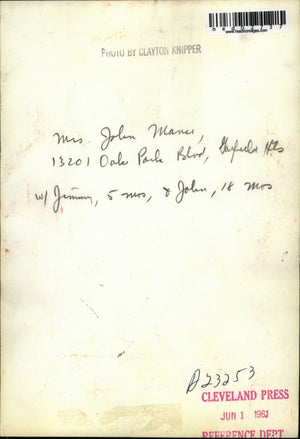 PHOTO BY CLAYTON KNIPPER
Mrs. John Manes,
13201 Oak Park Blvd, Garfield Hts
w/ Jimmy, 5 mos, & John, 18 mos
D23253
CLEVELAND PRESS
JUN 1 1961
REFERENCE DEPT.